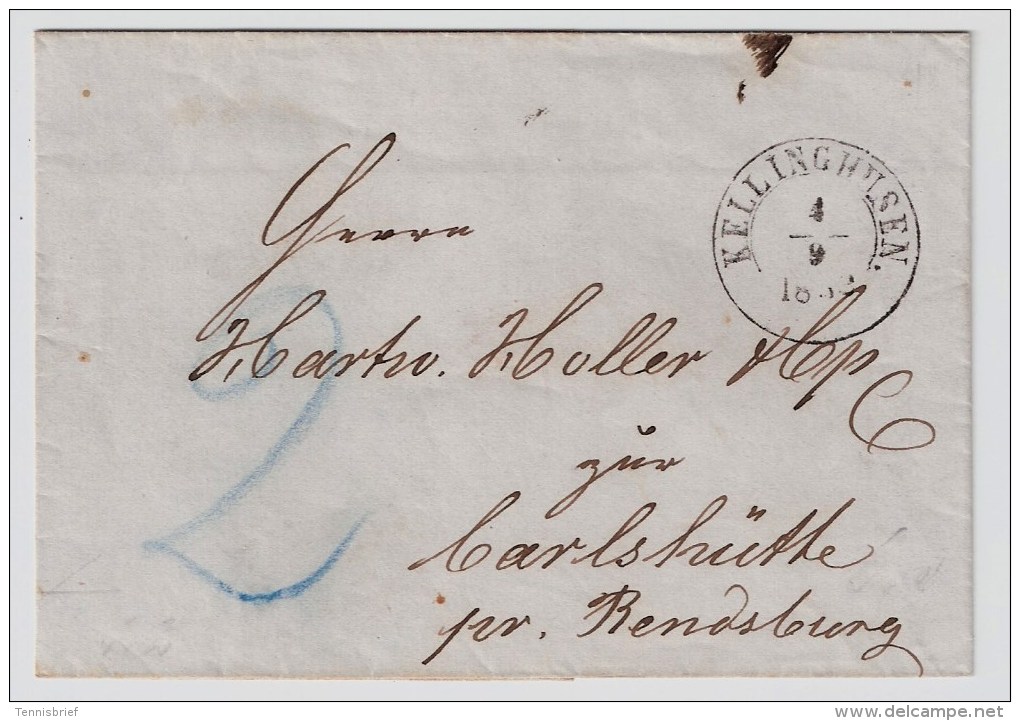 KELLINGHUSEN.
4
9
Herrn
Hartw. Holler & Cp
zur
Carlshütte
pr. Rendsburg
2
Tennisbrief
delcampe.net